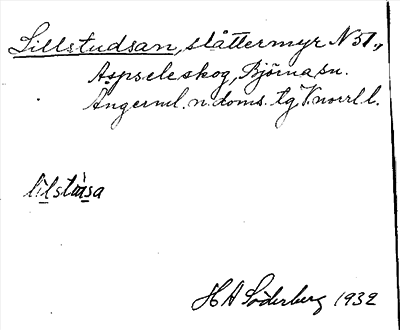 Lillstudsan, slåttermyr N 51.,
Aspseleskog, Björna sn.
Ångerml. n. doms. tg. V. norrl l.
lilstùsa
H A Söderberg 1932